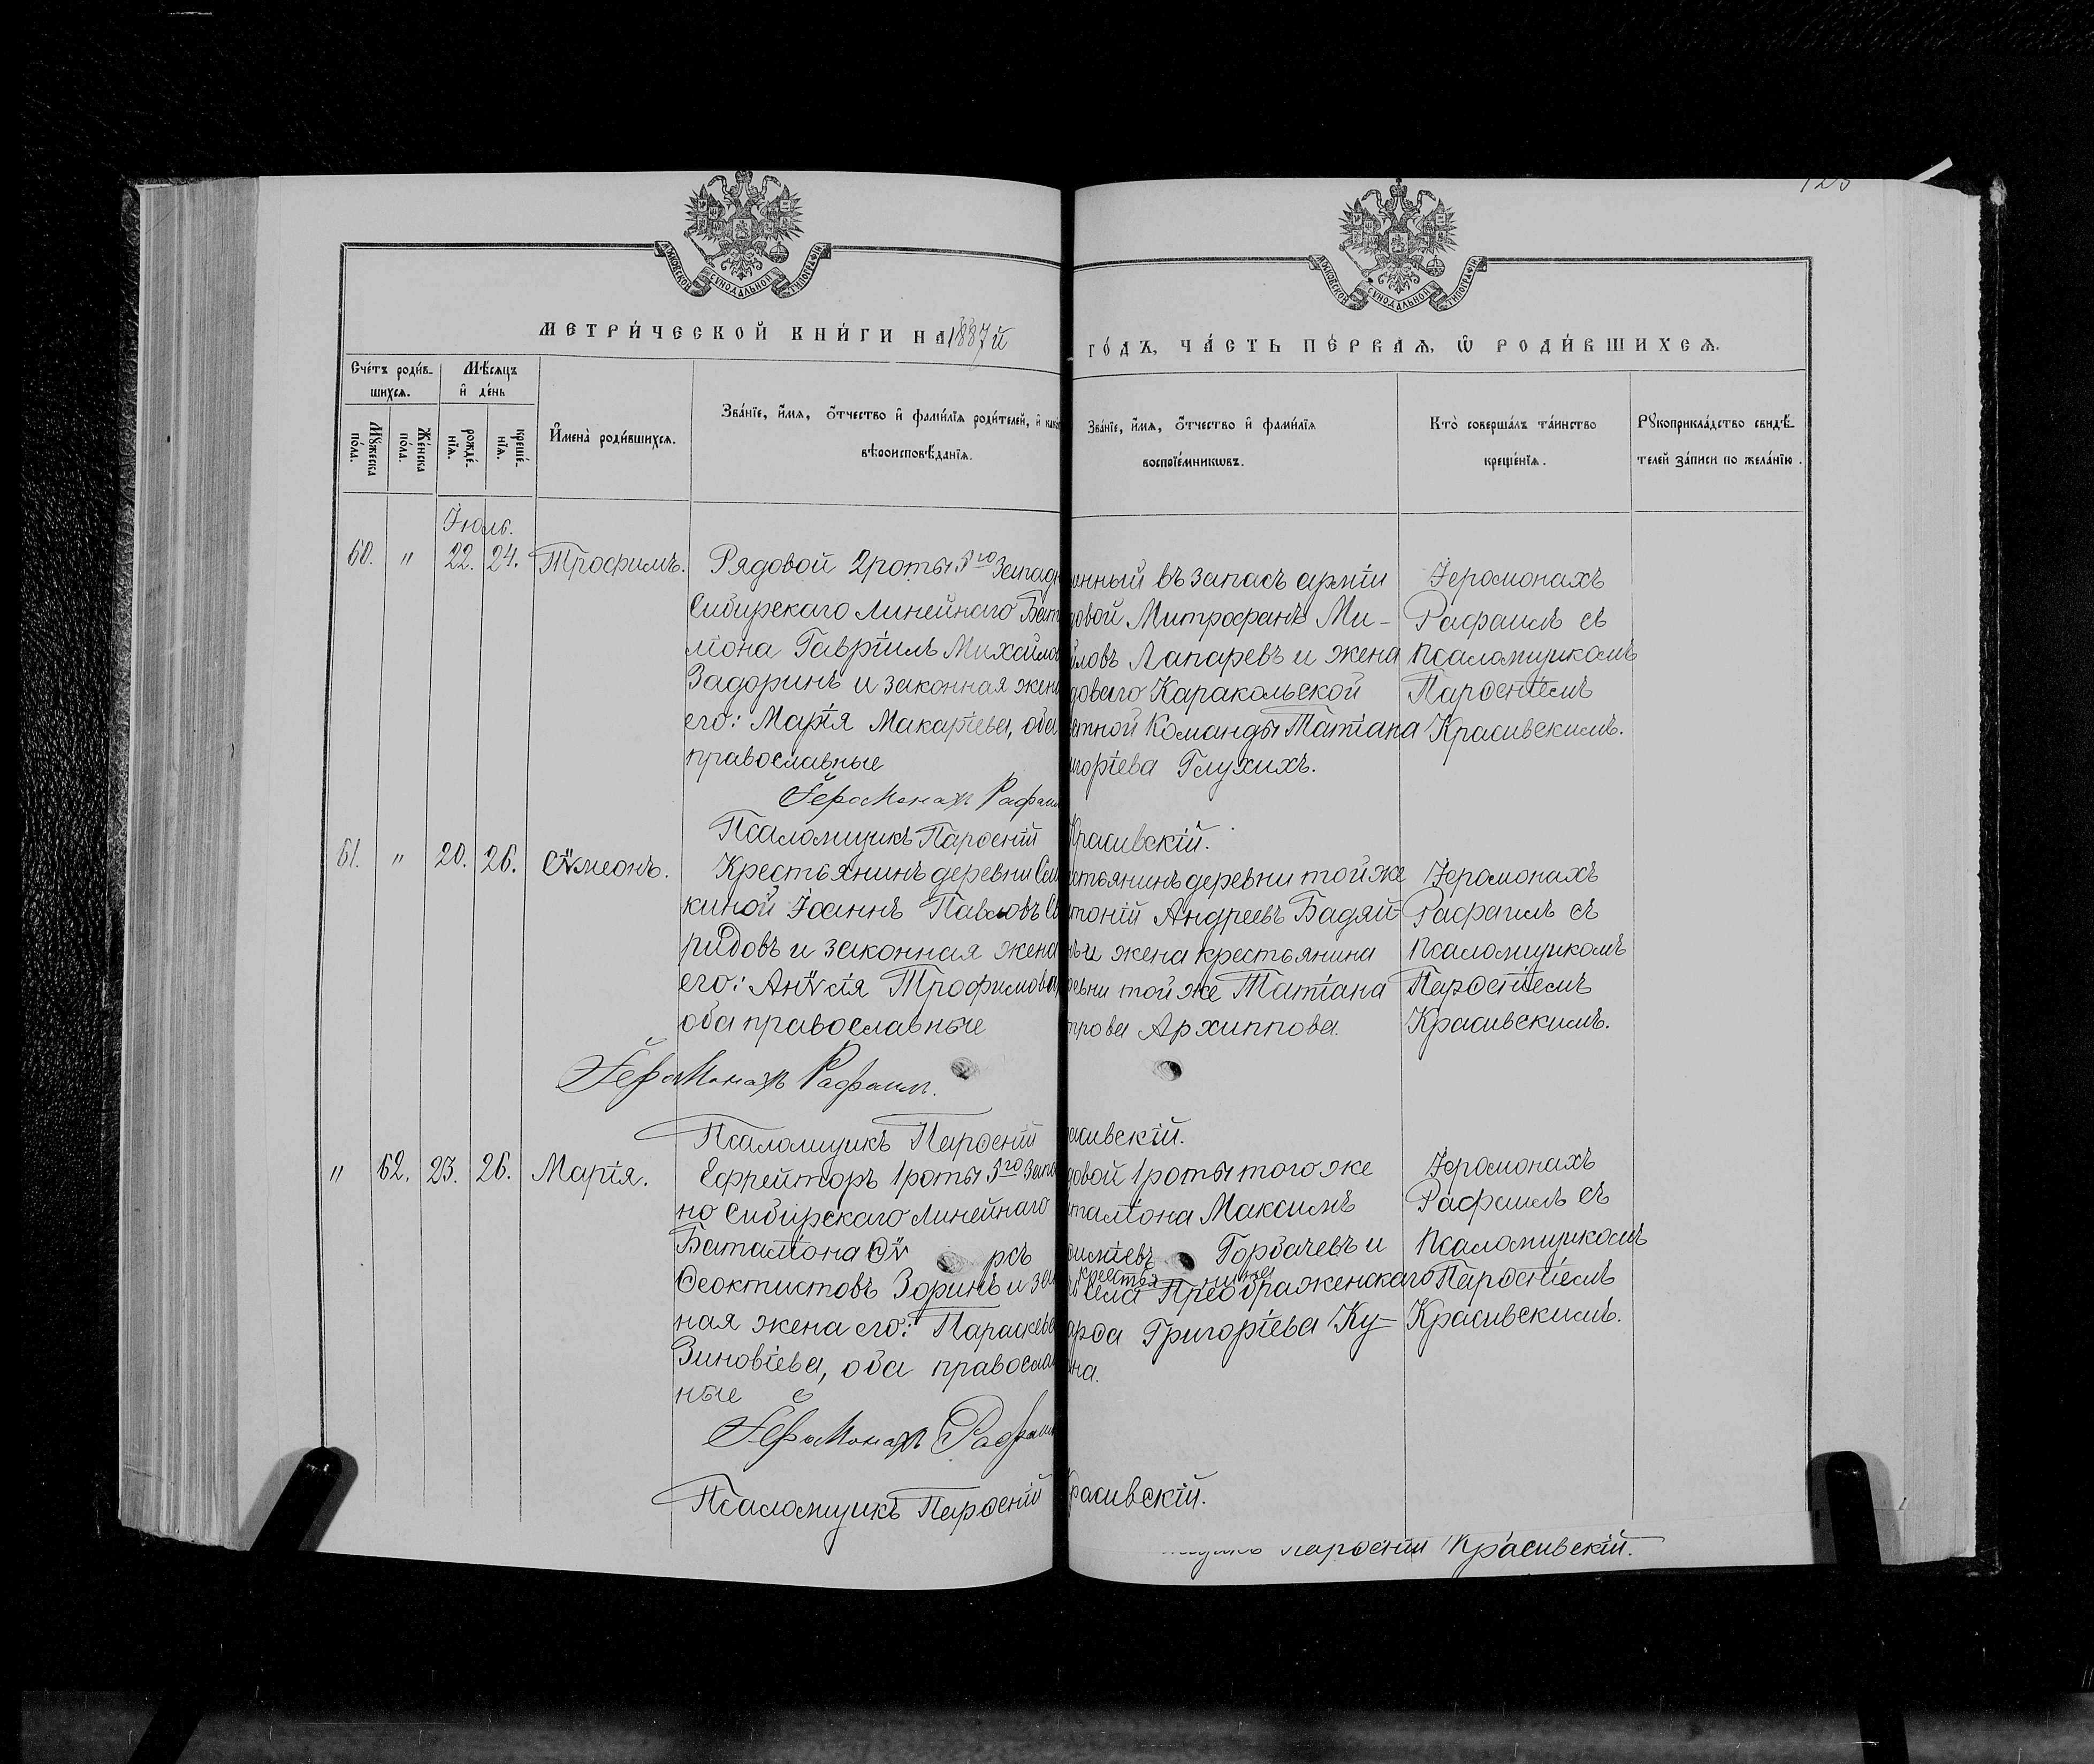 125
МОСКОВСКОЙ СѴНОДАЛЬНОЙ ТИПОГРАФІИ
МОСКОВСКОЙ СѴНОДАЛЬНОЙ ТИПОГРАФІИ
МЕТРИ́ЧЕСКОЙ КНИ́ГИ НА 1887й
ГО́ДЪ, ЧА́СТЬ ПЕ́РВАѦ, Ѡ҆ РОДИ́ВШИХСѦ.
Сче́тъ роди́в-
шихсѧ.
Мꙋжеска по́ла.
Же́нска по́ла.
Мѣ́сѧцъ
и҆ де́нь
рожде́-
нїѧ.
креще́-
нїѧ.
И҆мена̀ роди́вшихсѧ.
Зва́нїе, и҆́мѧ, ѻ҆́тчество и҆ фами́лїѧ роди́телей, и҆
вѣроисповѣ́данїѧ.
Зва́нїе, и҆́мѧ, ѻ҆́тчество и҆ фами́лїѧ
воспрїе́мникѡвъ.
Кто̀ соверша́лъ та́инство
креще́нїѧ.
Рꙋкоприкла́дство свидѣ́-
телей за́писи по жела́нїю.
Іюль.
60. " 22. 24. Трофимъ.
Рядовой 2 роты 5го Западн
Сибирскаго Линейнаго Бат
ліона Гавріилъ Михайлов
Задоринъ и законная жен
его: Марія Макаріева, оба
православные
нный въ запасъ арміи
довой Митрофанъ Ми-
йловъ Лапаревъ и жена
доваго Каракольской
стной Команды Татіана
игоріева Глухихъ.
Іеромонахъ
Рафаилъ съ
псаломщикомъ
Парѳеніемъ
Красивскимъ.
Іеромонахъ Рафаил
Псаломщикъ Парѳеній Красивскій.
61. " 20. 26. Сѵмеонъ.
Крестьянинъ деревни Сли
киной Іоаннъ Павловъ Сп
ридовъ и законная жена
его: Анѵсія Трофимова,
оба православные
стьянинъ деревни той же
тоній Андреевъ Бадяй-
нъ и жена крестьянина
ревни той же Татіана
трова Архиппова.
Іеромонахъ
Рафаилъ съ
псаломщикомъ
Парѳеніемъ
Красивскимъ.
Іеромонахъ Рафаилъ.
Псаломщикъ Парѳеній расивскій.
" 62. 23. 26. Марія.
Ефрейторъ 1 роты 5го Запа
но Сибирскаго Линейнаго
Баталіона Ѳѵ рсъ
Ѳеоктистовъ Зоринъ и за
ная жена его: Параскева
Зиновіева, оба правосла
ные
довой 1 роты того же
таліона Максимъ
Горбачевъ и
села Преображенскаго
арѳа Григоріева Ку-
на.
Іеромонахъ
Рафаилъ съ
псаломщикомъ
Парѳеніемъ
Красивскимъ.
Іеромонахъ Рафаи
Псаломщикъ Парѳеній расивскій.
Парѳеній Красивскій.